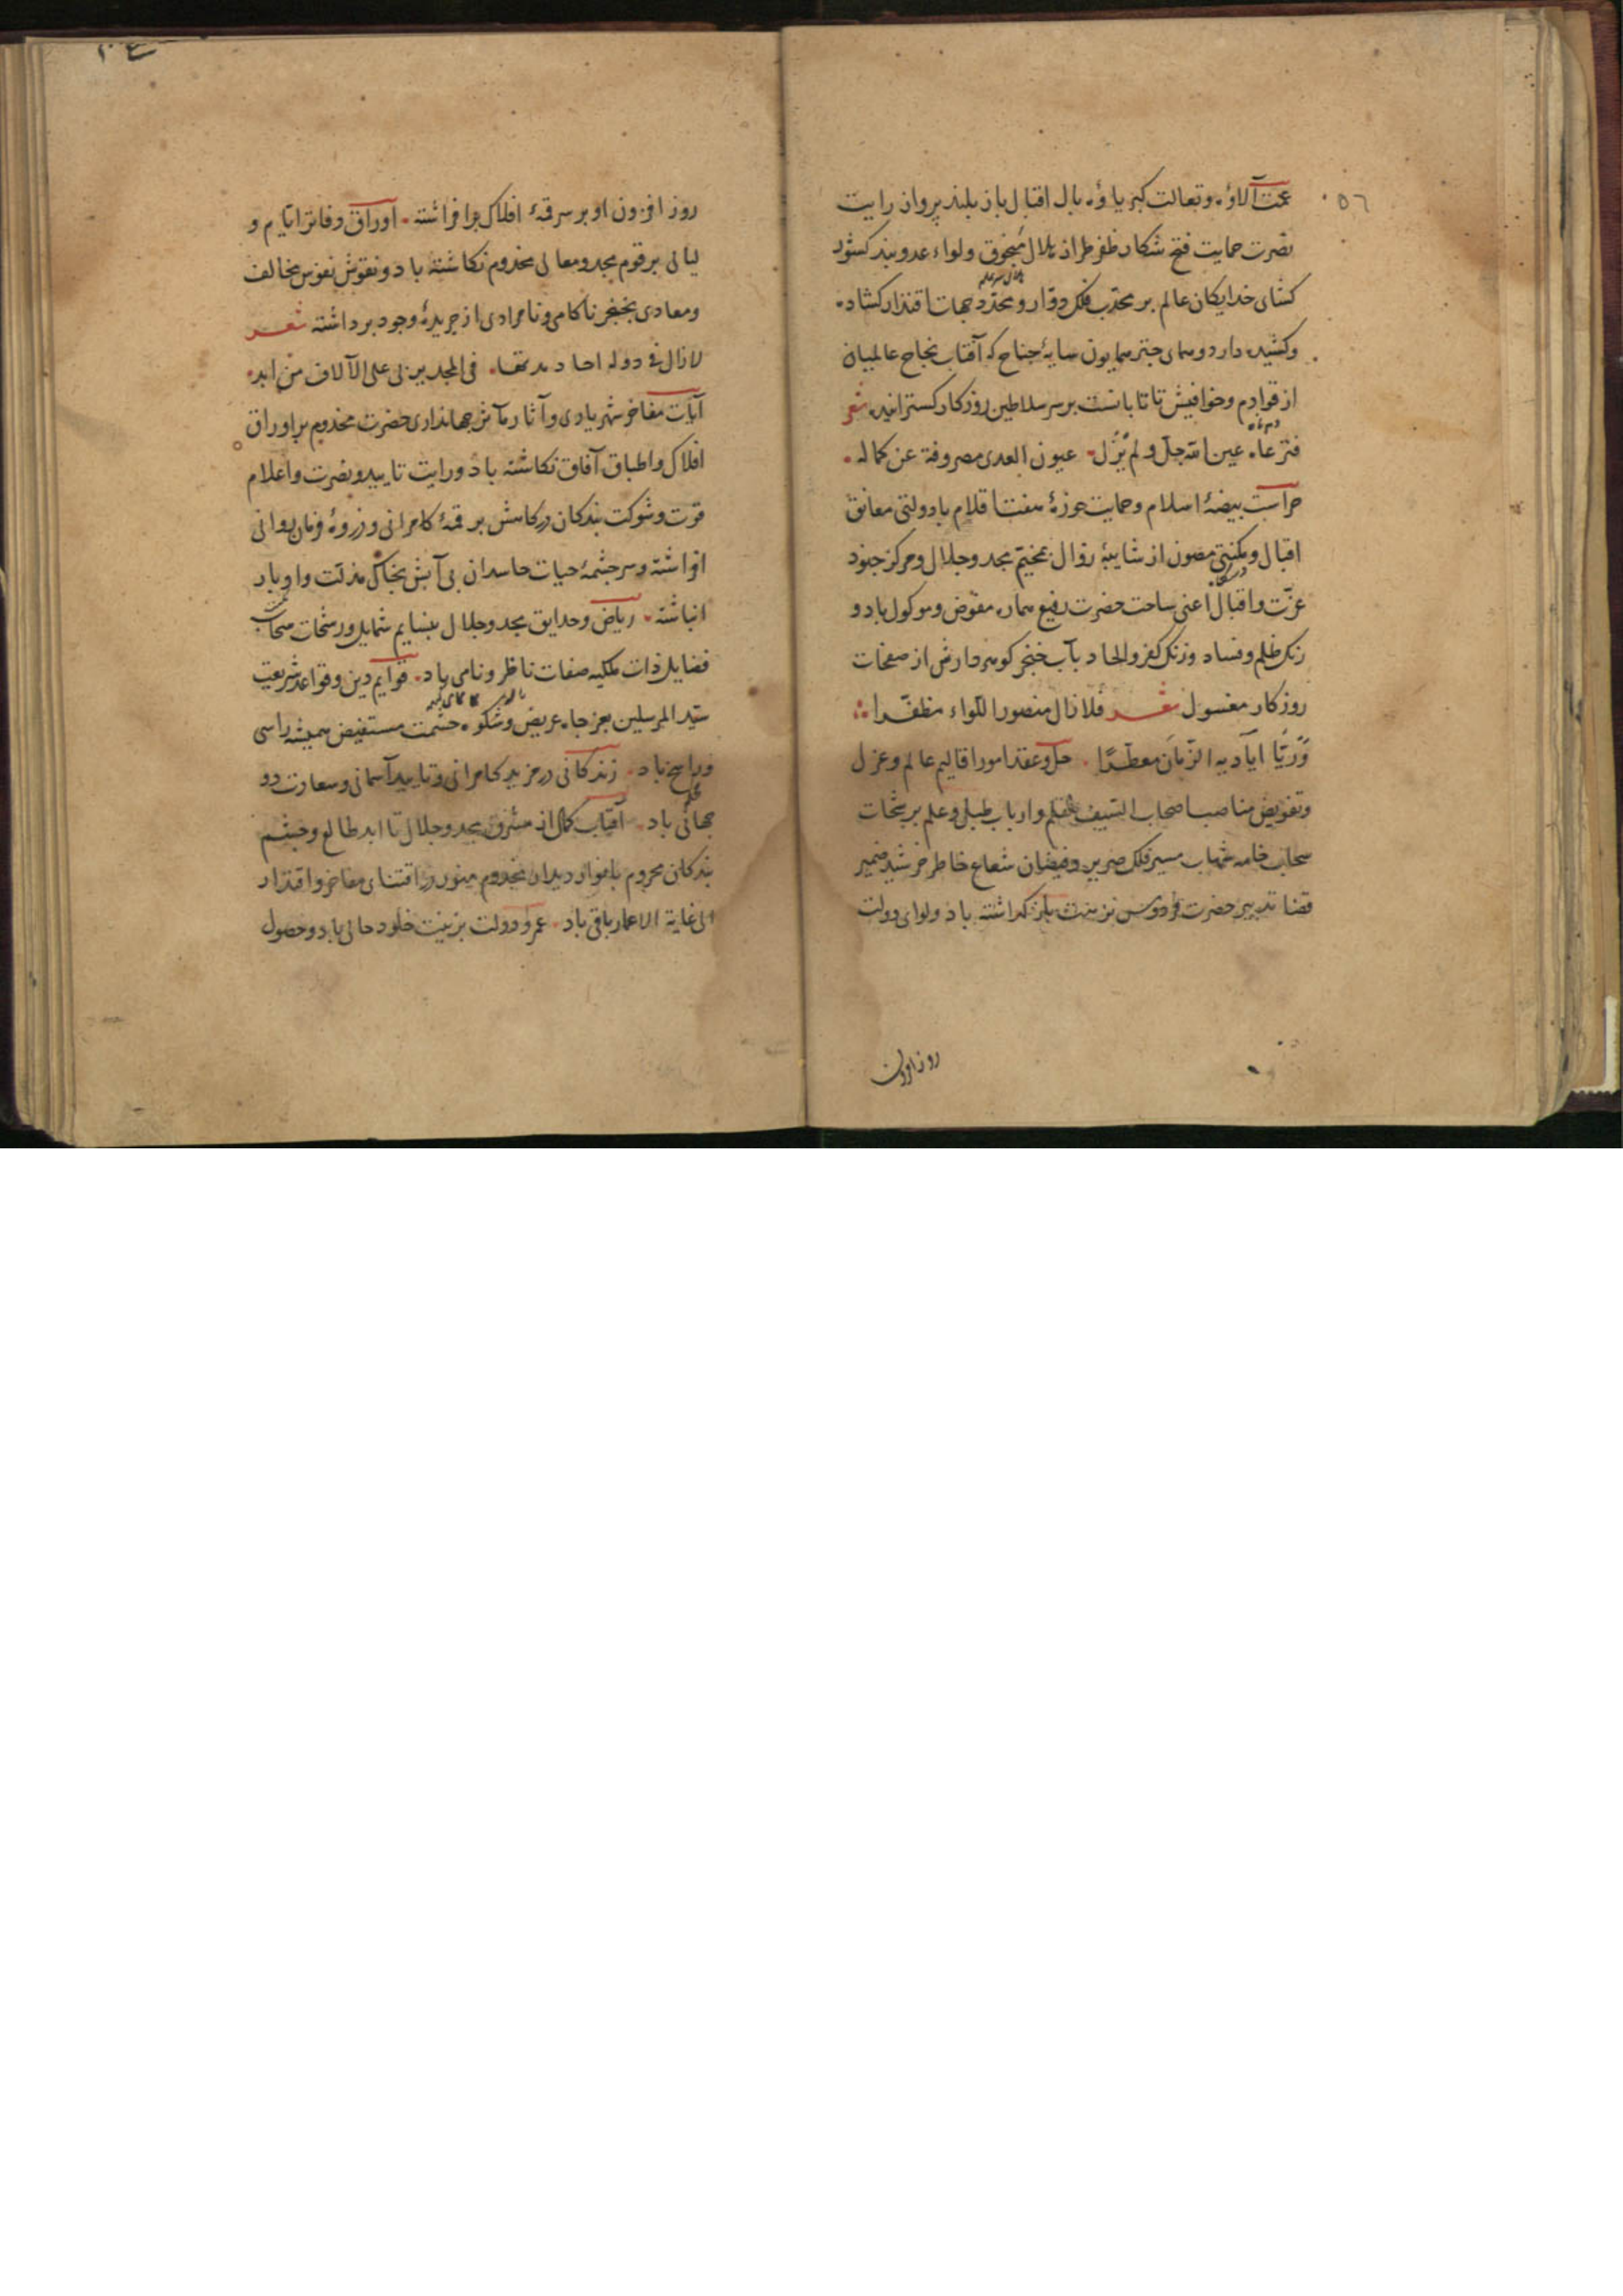 ٥٦
عمت آلاؤه وتعالت کبریاؤه بال اقبال باز بلند پرواز رایت
نصرت حمایت فتح شکار ظفر طراز بلال منجوق ولواء عدو بند کشور
کشای خدایکان عالم بر محدب فلک دوار و محدد جهات اقتدار کشاده
وکشیده دارد و همای چتر همایون سایهٔ جناح که آفتاب نجاح عالمیان
از قوادم وخوافیش تاتابانست بر سر سلاطین روزکار کستراند شعر
فترعاه عین الله جل ولم یزل عیون العدی مصروفة عن کماله
حراست بیضهٔ اسلام و حمایت حوزهٔ هفت اقلام بادولتی معانق
اقبال و مکنتی مصون از شایبهٔ زوال بمخیم مجد وجلال ومرکز جنود
عزّت واقبال اعنی ساحت حضرت رفیع سماره مفوض وموکول باد و
زنک ظلم وفساد وزنک کفر والحاد بآب خنجر کوهردارش از صفحات
روزکار مغسول شعر فلا زال منصور اللواء مظفّرا
وریّا ایادیه الزمان معطّرا حل وعقد امور اقالیم عالم وعزل
وتفویض مناصب اصحاب السیف والقلم وارباب طبل وعلم برشحات
سحاب خامه شهاب مسیر فلک صریر وفیضان شعاع خاطر خرشید ضمیر
قضا تدبیر حضرت فردوس زینت بازکداشته باد ولوای دولت
روزافزون
روز افزون او بر سر قمهٔ افلاک برافراشته اوراق دفاتر ایام و
لیالی برقوم مجد ومعالی مخدوم نکاشته باد ونقوش نفوس مخالف
ومعادی بخنجر ناکامی ونامرادی از جریدهٔ وجود برداشته شعر
لازال فی دوله احاد مدتها فی المجد یربی علی الآلاف من ابد
آیات مفاخر شهریاری وآثار مآثر جهانداری حضرت مخدوم براوراق
افلاک واطباق آفاق نکاشته باد ورایت تایید ونصرت واعلام
قدرت وشوکت بندکان درکاهش بر قمهٔ کامرانی وذروهٔ فرمان روائی
افراشته وسرچشمهٔ حیات حاسدان بی آبش بخاک مذلت وادبار
انباشته ریاض وحدایق مجد وجلال بنسایم شمایل ورشحات سحاب
فضایل ذات ملکیه صفات ناظر ونامی باد قوایم دین وقواعد شریعت
سیّد المرسلین بعز جاه عریض وشکوه حشمت مستفیض همیشه راسی
وراسخ باد زندکانی در مزید کامرانی وتایید آسمانی وسعادت دو
جهانی باد آفتاب کمال از مشرق مجد وجلال تا ابد طالع وچشم
بندکان محروم بانوار دیدار مخدوم منور در اقتنای مفاخر واقتدار
الی غایة الاعمار باقی باد عمر ودولت بزینت خلود حالی باد وحصول